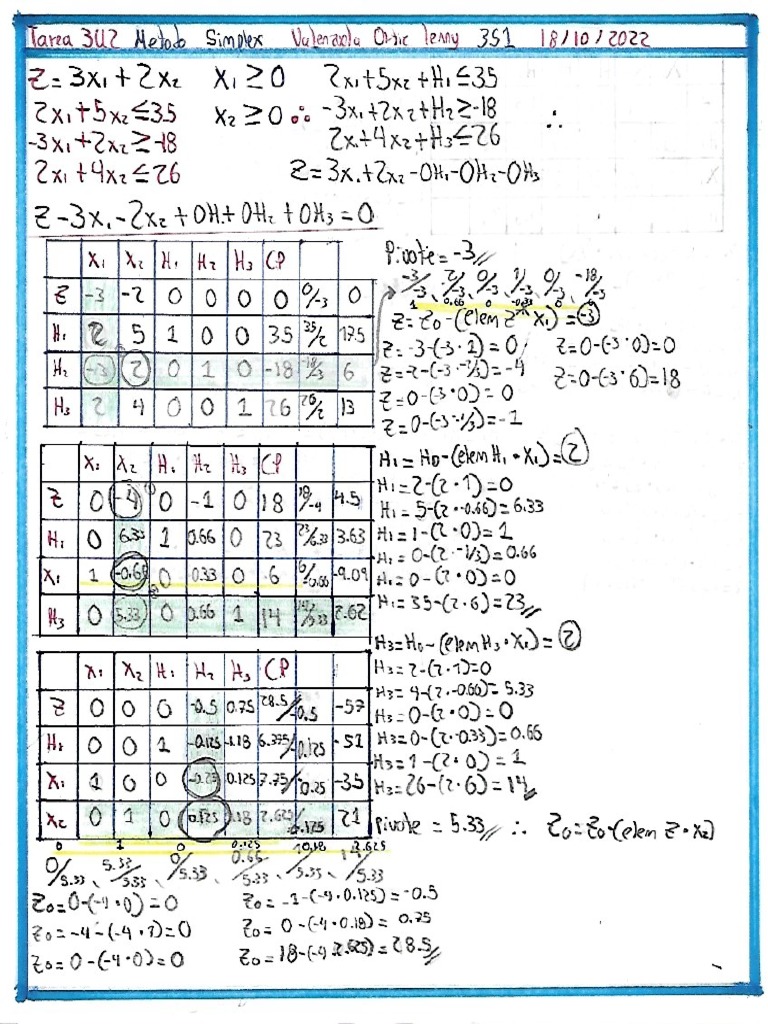 Tarea 3U2 Metodo Simplex Valenzuela Ortiz Jenny 3S1 18/10/2022
Z=3x₁+2x₂ X₁≥0 2x₁+5x₂+H₁≤35
2x₁+5x₂≤35 X₂≥0 ∴ -3x₁+2x₂+H₂≥-18 ∴
-3x₁+2x₂≥-18 2x₁+4x₂+H₃≤26
2x₁+4x₂≤26 Z=3x₁+2x₂-0H₁-0H₂-0H₃
Z-3x₁-2x₂+0H₁+0H₂+0H₃=0
X₁ X₂ H₁ H₂ H₃ CP
Z -3 -2 0 0 0 0 0/-3 0
H₁ 2 5 1 0 0 35 35/2 17.5
H₂ -3 2 0 1 0 -18 -18/-3 6
H₃ 2 4 0 0 1 26 26/2 13
Pivote=-3
-3/-3, 2/-3, 0/-3, 1/-3, 0/-3, -18/-3
1 0.66 0 -0.33 0 6
Z=Z₀-(elem Z * X₁)=-3
Z=-3-(-3·1)=0 Z=0-(-3·0)=0
Z=-2-(-3·-2/3)=-4 Z=0-(-3·6)=18
Z=0-(-3·0)=0
Z=0-(-3·-1/3)=-1
X₁ X₂ H₁ H₂ H₃ CP
Z 0 -4 0 -1 0 18 18/-4 4.5
H₁ 0 6.33 1 0.66 0 23 23/6.33 3.63
X₁ 1 -0.66 0 0.33 0 6 6/-0.66 -9.09
H₃ 0 5.33 0 0.66 1 14 14/5.33 2.62
H₁=H₀-(elem H₁·X₁)=2
H₁=2-(2·1)=0
H₁=5-(2·-0.66)=6.33
H₁=1-(2·0)=1
H₁=0-(2·-1/3)=0.66
H₁=0-(2·0)=0
H₁=35-(2·6)=23
H₃=H₀-(elem H₃·X₁)=2
H₃=2-(2·1)=0
H₃=4-(2·-0.66)=5.33
H₃=0-(2·0)=0
H₃=0-(2·-0.33)=0.66
H₃=1-(2·0)=1
H₃=26-(2·6)=14
X₁ X₂ H₁ H₂ H₃ CP
Z 0 0 0 -0.5 0.75 28.5/-0.5 -57
H₁ 0 0 1 -0.125 -1.18 6.375/-0.125 -51
X₁ 1 0 0 -0.25 0.125 7.75/-0.25 -35
X₂ 0 1 0 0.125 .18 2.625/0.125 21
Pivote = 5.33 ∴ Z₀=Z₀-(elem Z·X₂)
0 1 0 0.125 0.18 2.625
0/5.33, 5.33/5.33, 0/5.33, 0.66/5.33, 1/5.33, 14/5.33
Z₀=0-(-4·0)=0 Z₀=-1-(-4·0.125)=-0.5
Z₀=-4-(-4·1)=0 Z₀=0-(-4·0.18)=0.75
Z₀=0-(-4·0)=0 Z₀=18-(-4·2.625)=28.5